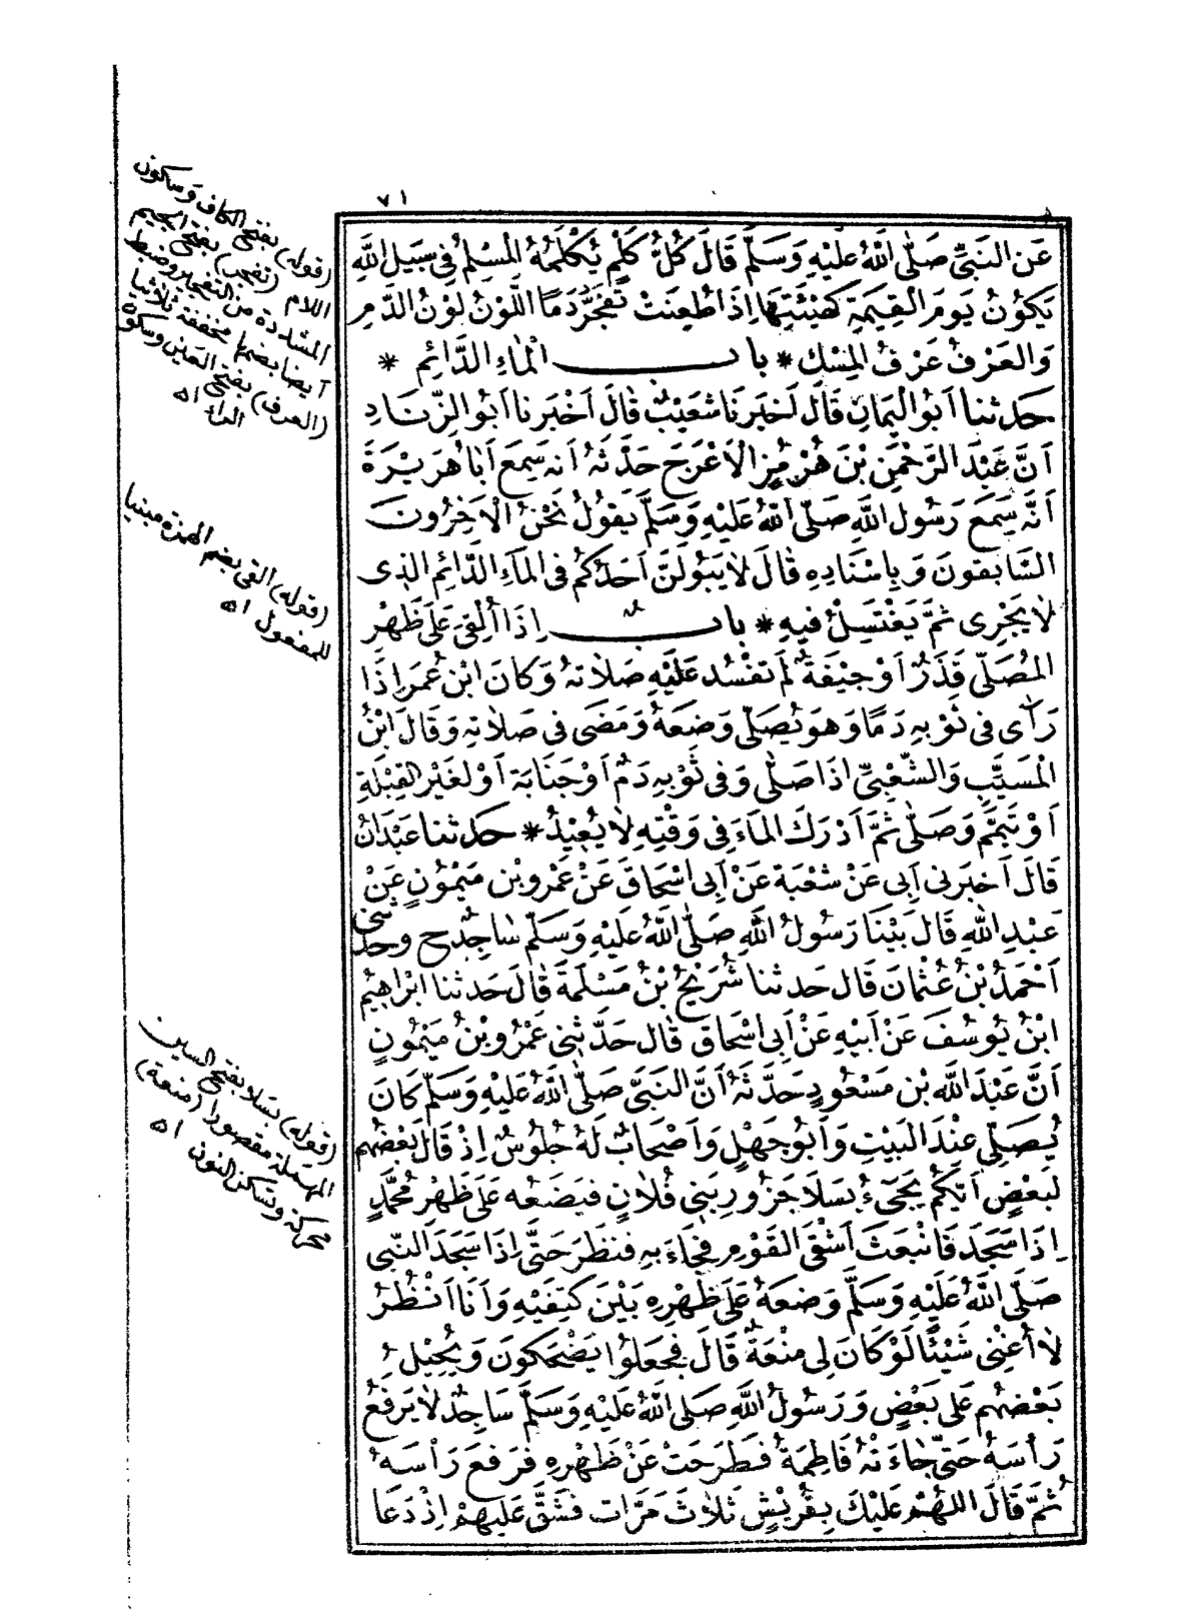 ٧١
عَنِ النَّبِيِّ صَلَّى اللهُ عَلَيْهِ وَسَلَّمَ قَالَ كُلُّ كَلْمٍ يُكْلَمُهُ الْمُسْلِمُ فِي سَبِيلِ اللهِ
يَكُونُ يَوْمَ الْقِيَمَةِ كَهَيْئَتِهَا إِذَا طُعِنَتْ تَفَجَّرُ دَمًا اللَّوْنُ لَوْنُ الدَّمِ
وَالعَرْفُ عَرْفُ المِسْكِ * باب الْمَاءِ الدَّائِمِ *
حَدثنا اَبُو الْيَمَانِ قَالَ اَخْبَرَنَا شُعَيْبٌ قَالَ اَخْبَرنا اَبُو الزِّنَادِ
اَنَّ عَبْدَ الرَّحْمٰنِ بْنَ هُرْمُزٍ الْاَعْرَجَ حَدَّثَهُ اَنه سَمِعَ اَبَا هُرَيْرَةَ
اَنَّهُ سَمِعَ رَسُولَ اللهِ صَلَّى اللهُ عَلَيْهِ وَسَلَّمَ يَقُولُ نَحْنُ الْآخِرُونَ
السَّابِقونَ وَبِاِسْنَادِهِ قَالَ لَا يَبُولَنَّ اَحَدُكُمْ فِى المَآءِ الدَّائِمِ الذِى
لَا يَجْرِى ثُمَّ يَغْتَسِلُ فِيهِ * بابٌ اِذَا أُلْقِىَ عَلَى ظَهْرِ
المُصَلِّى قَذَرٌ اَوْ جِيْفَةٌ لَمْ تَفْسُد عَلَيْهِ صَلَاتهُ وَكَانَ ابْن عُمَرَ اِذَا
رَآى فى ثَوْبِهِ دَمًا وَهوَ يُصَلِّى وَضَعَهُ وَمَضَى فى صَلَاتِهِ وَقَالَ ابْنُ
الْمُسَيَّبِ وَالشَّعْبِىُّ اذَا صَلَّى وَفى ثَوْبِهِ دَمٌ اَوْ جَنَابَة اَوْ لغَيْرِ القِبْلَةِ
اَوْ تَيَمَّمَ وَصَلَّى ثُمَّ اَدْرَكَ المَاءَ فِى وَقْتِهِ لَا يُعِيْدُ * حَدثنا عَبْدَانُ
قَالَ اَخْبَرنى اَبِى عَنْ شُعْبَة عَنْ اَبِى اسْحَاقَ عَنْ عَمْرِو بْن مَيْمُوْنٍ عَنْ
عَبْدِ اللهِ قَالَ بَيْنَا رَسُولُ اللهِ صَلَّى اللهُ عَلَيْهِ وَسَلَّمَ سَاجِدٌ ح وحدثنى
اَحْمَدُ بْنُ عُثْمَانَ قَال حَدثنا شُرَيْحُ بْنُ مَسْلَمَةَ قَالَ حَدثنا ابْرَاهِيْمُ
ابْنُ يُوسُفَ عَنْ اَبِيْهِ عَنْ اَبِى اسْحَاق قَال حَدَّثَنِى عَمْرُو بْنُ مَيْمُونٍ
اَنَّ عَبْدَ اللهِ بْنَ مَسْعُودٍ حَدَّثَهُ اَنَّ النَبىَّ صَلَّى اللهُ عَلَيْهِ وَسَلَّمَ كَانَ
يُصَلِّى عِنْدَ البَيْتِ وَاَبُو جَهْلٍ وَاَصْحَابٌ لَهُ جُلُوسٌ اِذْ قَالَ بَعْضُهُم
لِبَعْضٍ اَيُّكُمْ يَجِىءُ بِسَلَا جَزُورِ بَنِى فُلَانٍ فَيَضَعُه عَلَى ظَهْرِ مُحَمَّدٍ
اِذَا سَجَدَ فَانْبَعَثَ اَشْقَى القَوْمِ فَجَاءَ بِهِ فَنَظَرَ حَتَّى اِذَا سَجَدَ النَّبِى
صَلَّى اللهُ عَلَيْهِ وَسَلَّمَ وَضَعَهُ عَلَى ظَهْرِهِ بَيْنَ كَتِفَيْهِ وَاَنَا اَنْظُرُ
لَا اُغْنِى شَيْئًا لَوْ كَانَ لِى مَنْعَةٌ قَالَ فَجَعَلُوْا يَضْحَكونَ وَيُحِيْلُ
بَعْضُهُم عَلَى بَعْضٍ وَرَسُولُ اللهِ صَلَى اللهُ عَلَيْهِ وَسَلَّمَ سَاجِدٌ لَا يَرْفَعُ
رَأْسَهُ حَتَّى جَاءَتْهُ فَاطِمَةُ فَطَرَحَتْ عَنْ ظَهْرِهِ فَرَفَعَ رَأْسَهُ
ثُمَّ قَالَ اللهُمَّ عَلَيْكَ بِقُرَيْشٍ ثَلَاثَ مَرَّات فشَقَّ عَلَيهِمْ اِذْ دَعَا
(قوله) بفتح الكاف وسكون
اللام (تفجر) بفتح الجيم
المشددة من التفجير وضبط
ايضا بضمها مخففة ثلاثيا
(العرف) بفتح العين وسكون
الراء اه
(قوله) القى بضم الهمزة مبنيا
للمفعول اه
(قوله) بسلا بفتح السين
المهملة مقصورا (منعة)
محركة وتسكن النون اه